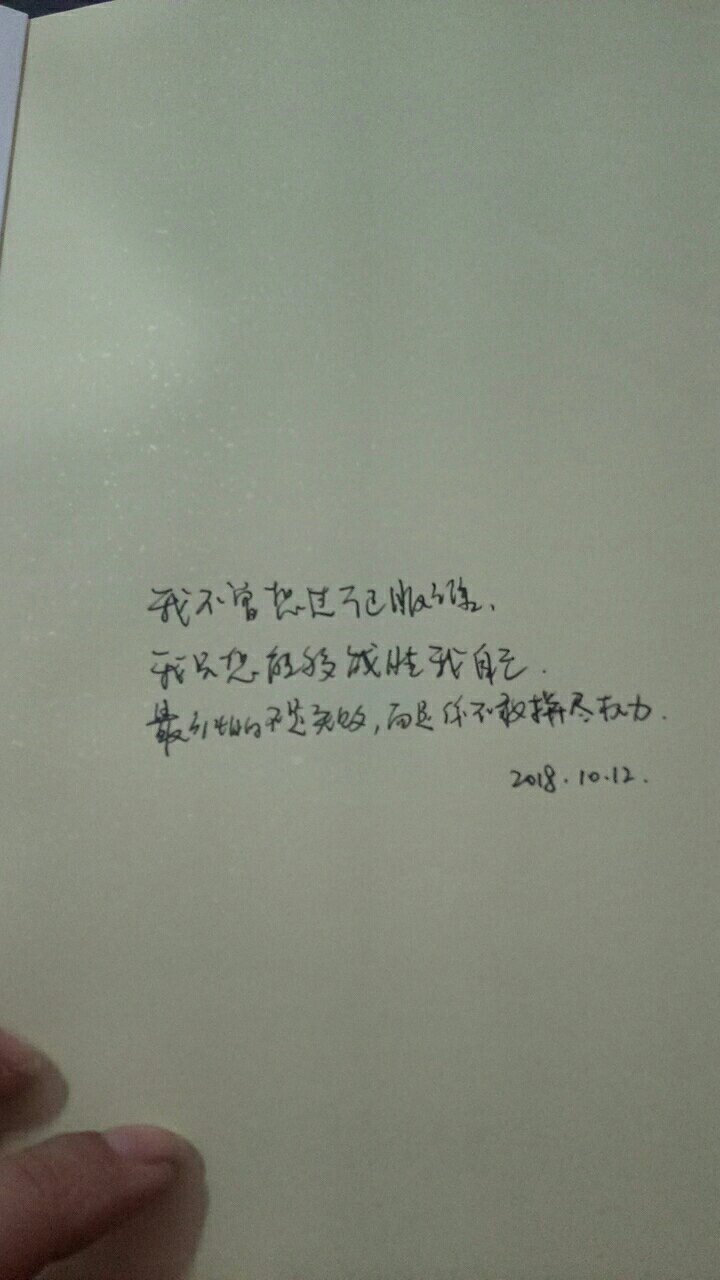 我不曾想过
我只想能够战胜我自己.
最可怕的不是失败,而是你不敢拼尽权力.
2018.10.12.